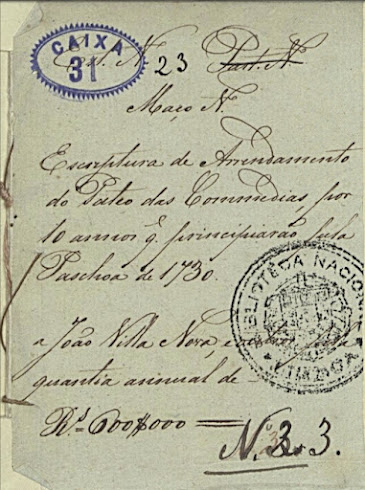 CAIXA
31
Est. Nº 23 Part. N.
Maço N.
Escriptura de Arrendamento
do Pateo das Commedias, por
10 annos q. principiarão pela
Paschoa de 1730.
a João Villa Nova,
quantia annual de
Rs. 600$000 =
N. 3.
BIBLIOTECA NACIONAL